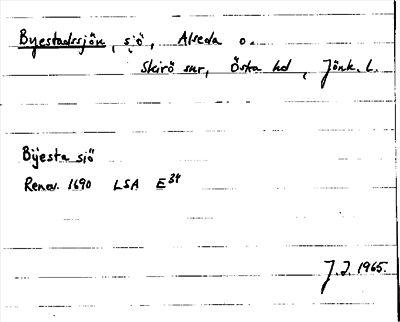 Byestadssjön, sjö, Alseda o.
Skirö snr, Östra hd, Jönk. L.
Bÿesta siö
Renov. 1690 LSA E34
J.J. 1965.